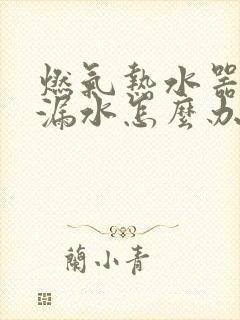 燃氣熱水器
漏水怎麼办
蘭小青